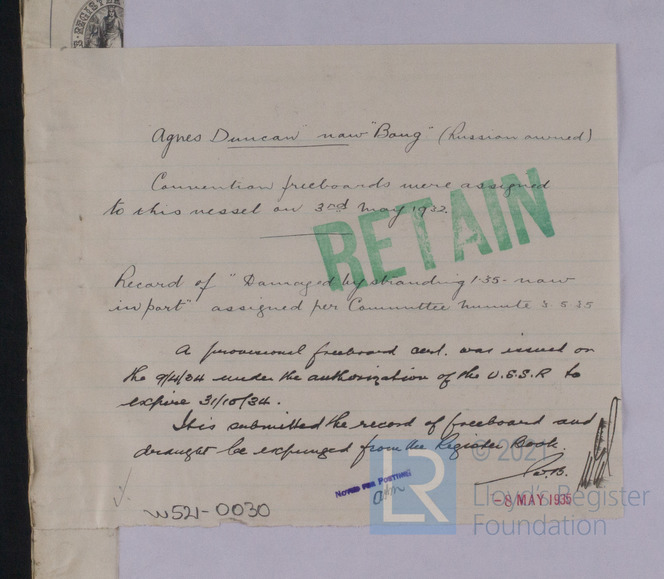 S·REGISTER
Agnes Duncan" now "Boug" (Russian owned)
Convention freeboards were assigned
to this vessel on 3rd May 1932.
RETAIN
Record of "Damaged by stranding 1·35 - now
in port" assigned per Committee minute 3.5.35
A provisional freeboard cert. was issued on
the 9/4/34 under the authorization of the U.S.S.R to
expire 31/10/34.
It is submitted the record of freeboard and
draught be expunged from the Register Book.
W.B.
NOTED FOR POSTING
-8 MAY 1935
W521-0030
LR
© 2021
Lloyd's Register
Foundation